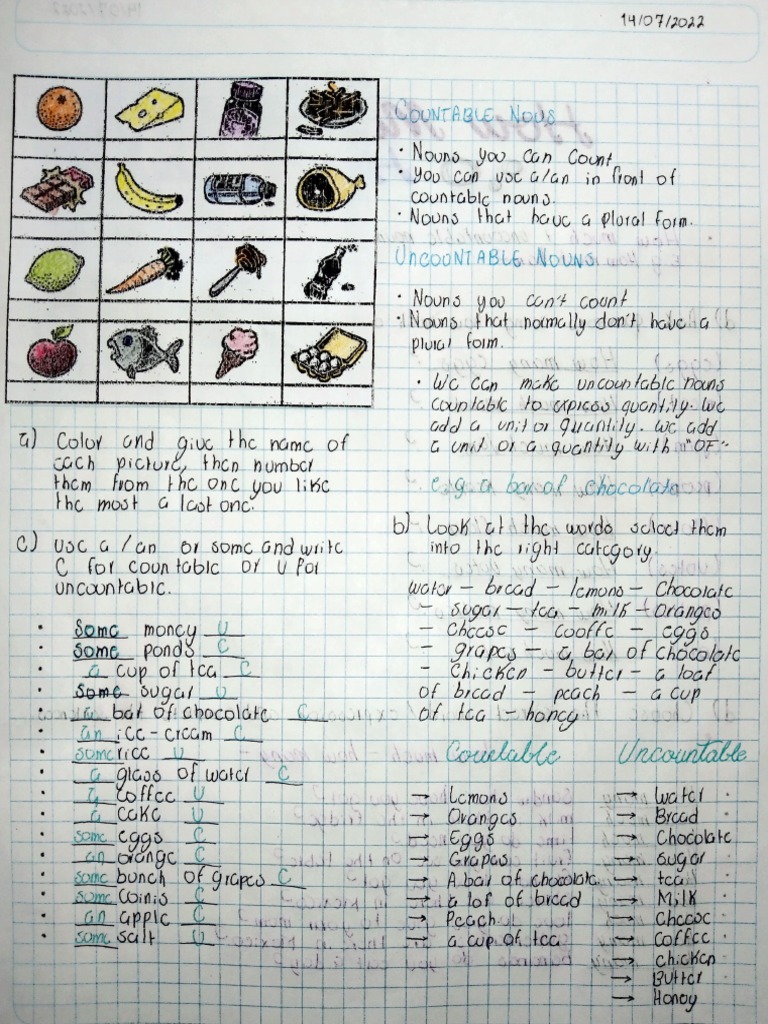 14/07/2022
COUNTABLE NOUS
• Nouns you can count
• You can use a/an in front of
countable nouns.
• Nouns that have a plural form.
UNCOUNTABLE NOUNS
• Nouns you can't count
• Nouns that normally don't have a
plural form.
• We can make uncountable nouns
countable to express quantity. We
add a unit or quantity. We add
a unit or a quantity with "OF"
e.g a bar of chocolate
a) Color and give the name of
each picture, then number
them from the one you like
the most a last one.
b) Look at the words select them
into the right category.
water – bread – lemons – Chocolate
– sugar – tea – milk – oranges
– cheese – cooffe – eggs
– grapes – a bar of chocolate
– chicken – butter – a loaf
of bread – peach – a cup
of tea – honey
c) use a / an or some and write
C for countable or U for
uncountable.
• some money U
• some ponds C
• a cup of tea C
• some sugar U
• a bar of chocolate C
• an ice-cream C
• some rice U
• a glass of water C
• a coffee U
• a cake U
• some eggs C
• an orange C
• some bunch of grapes C
• some coinis C
• an apple C
• some salt U
Countable
→ Lemons
→ Oranges
→ Eggs
→ Grapes
→ A bar of chocolate
→ a lof of bread
→ Peach
→ a cup of tea
Uncountable
→ Water
→ Bread
→ Chocolate
→ sugar
→ tea
→ Milk
→ Cheese
→ Coffee
→ chicken
→ Butter
→ Honey